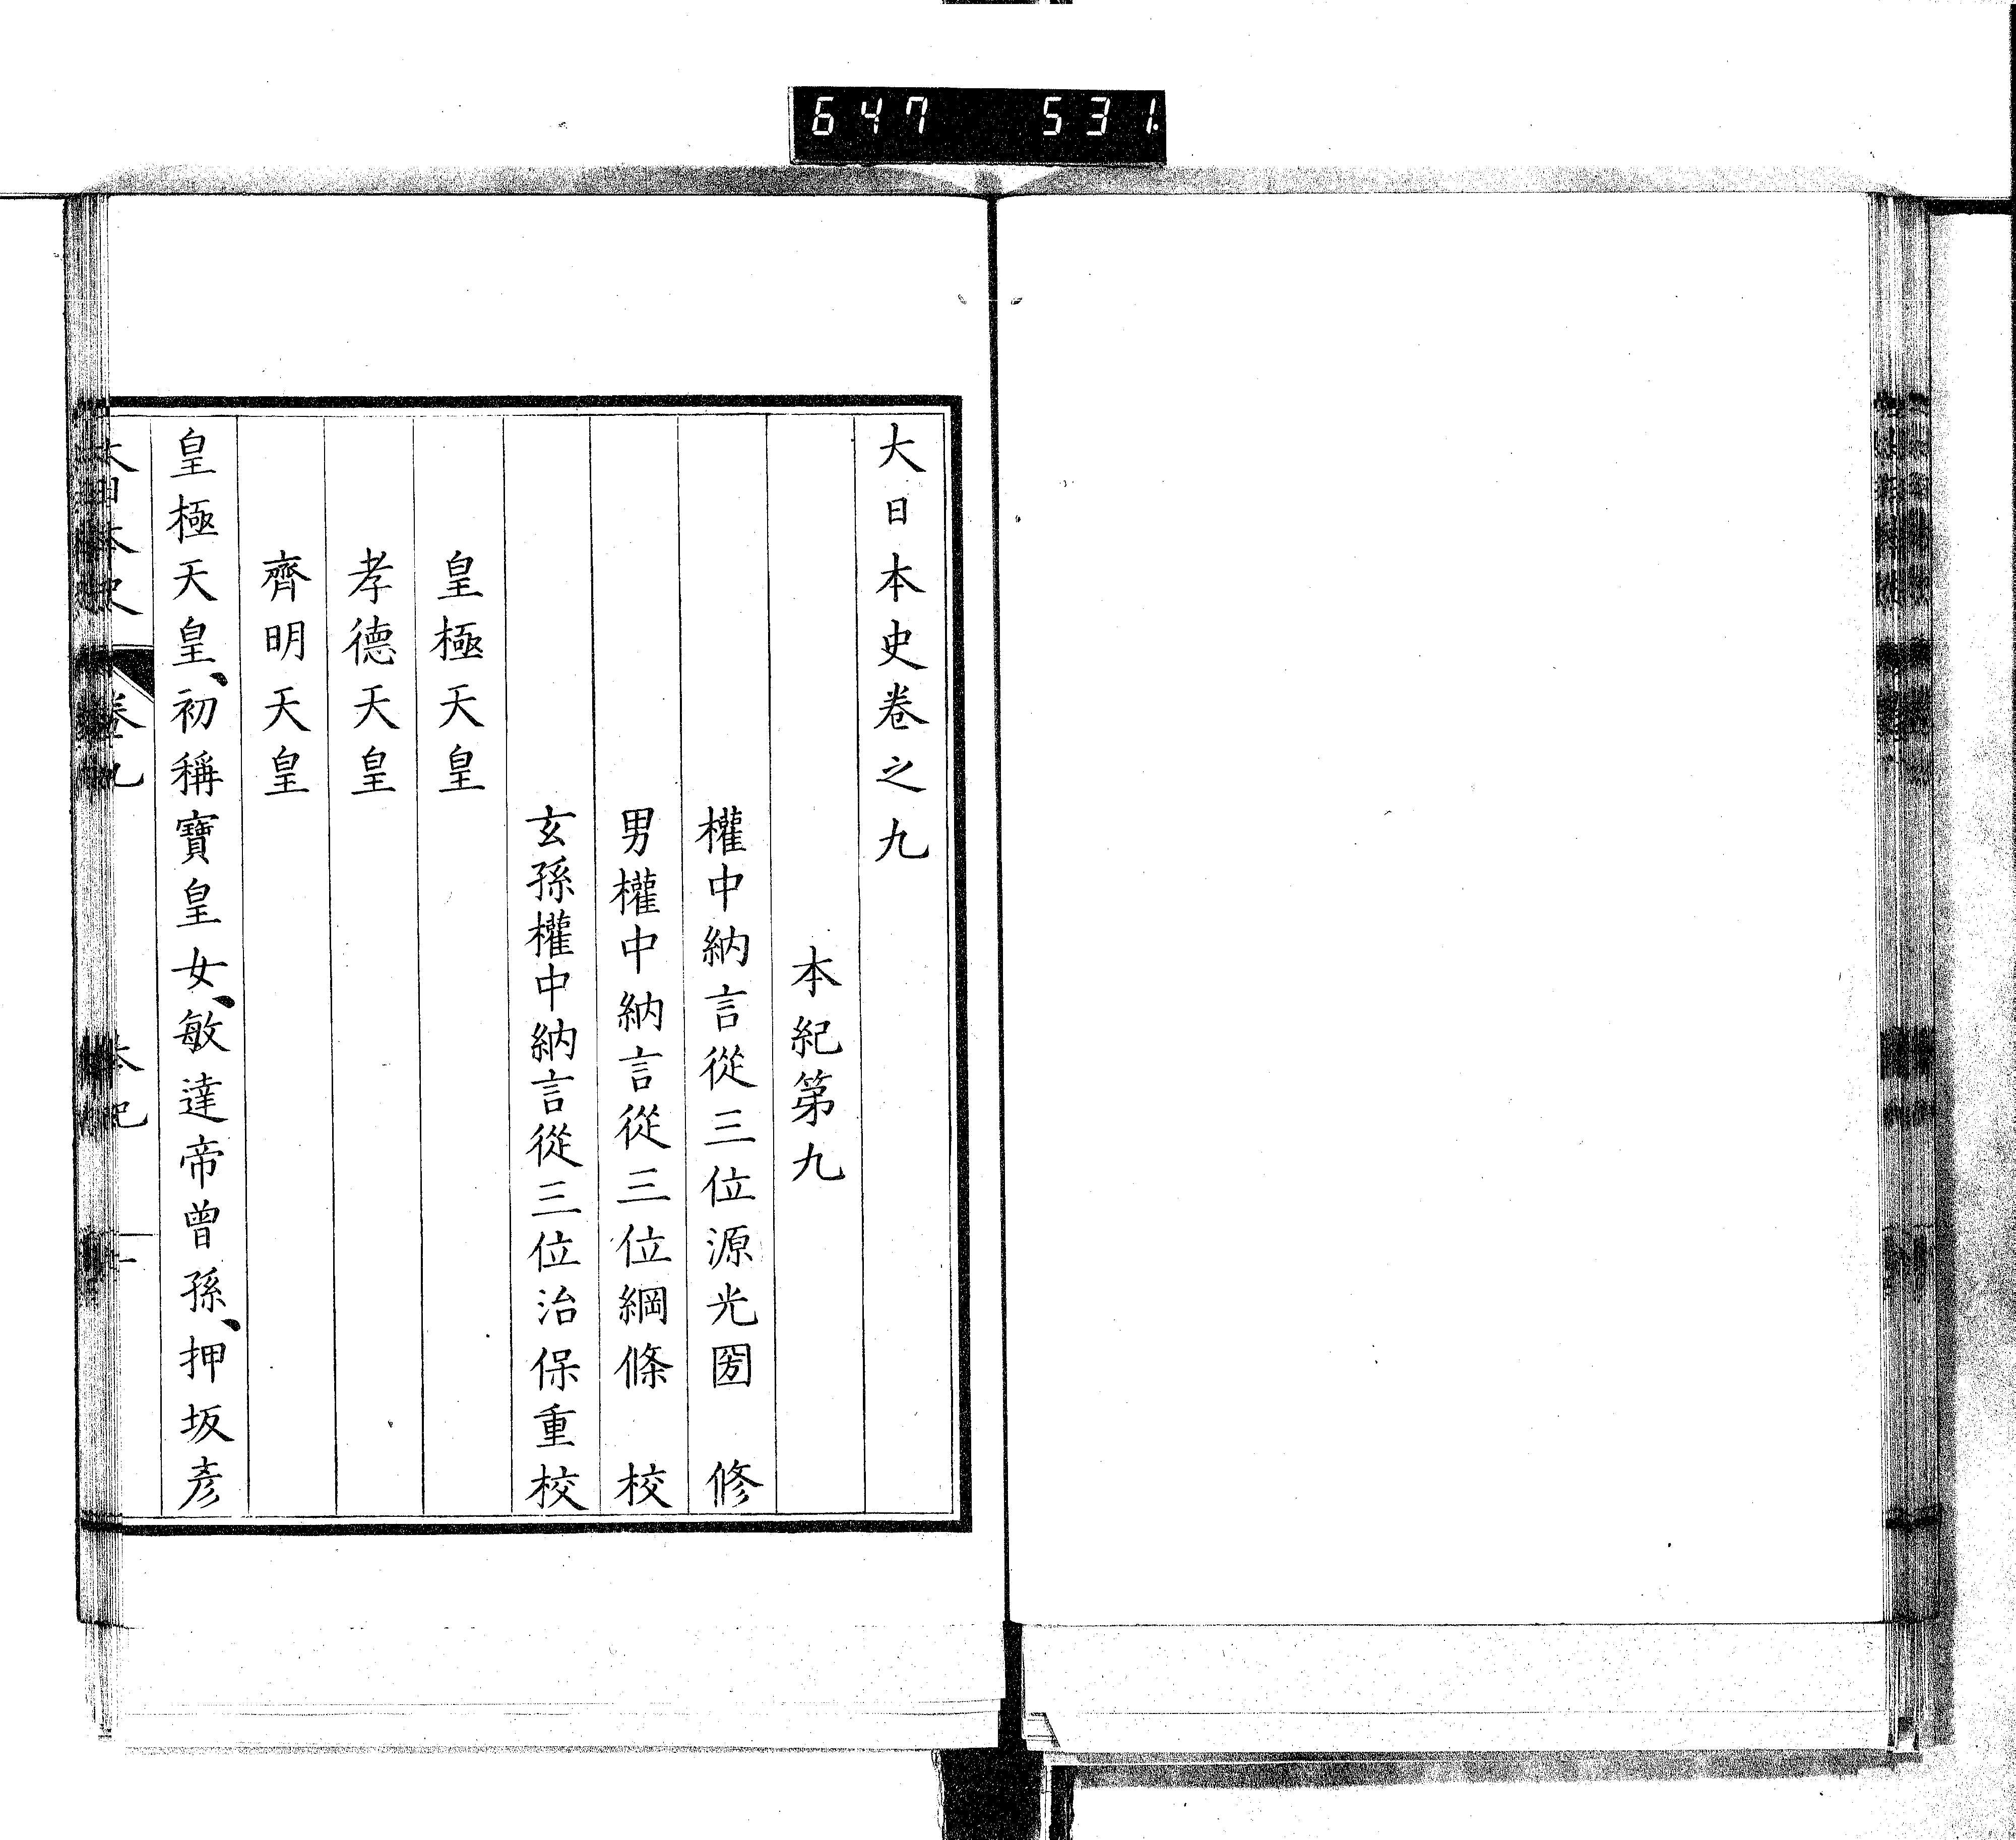 647 531
大日本史卷之九
本紀第九
權中納言從三位源光圀 修
男權中納言從三位綱條 校
玄孫權中納言從三位治保重校
皇極天皇
孝德天皇
齊明天皇
皇極天皇、初稱寶皇女、敏達帝曾孫、押坂彥
大日本史 卷九 本紀 一